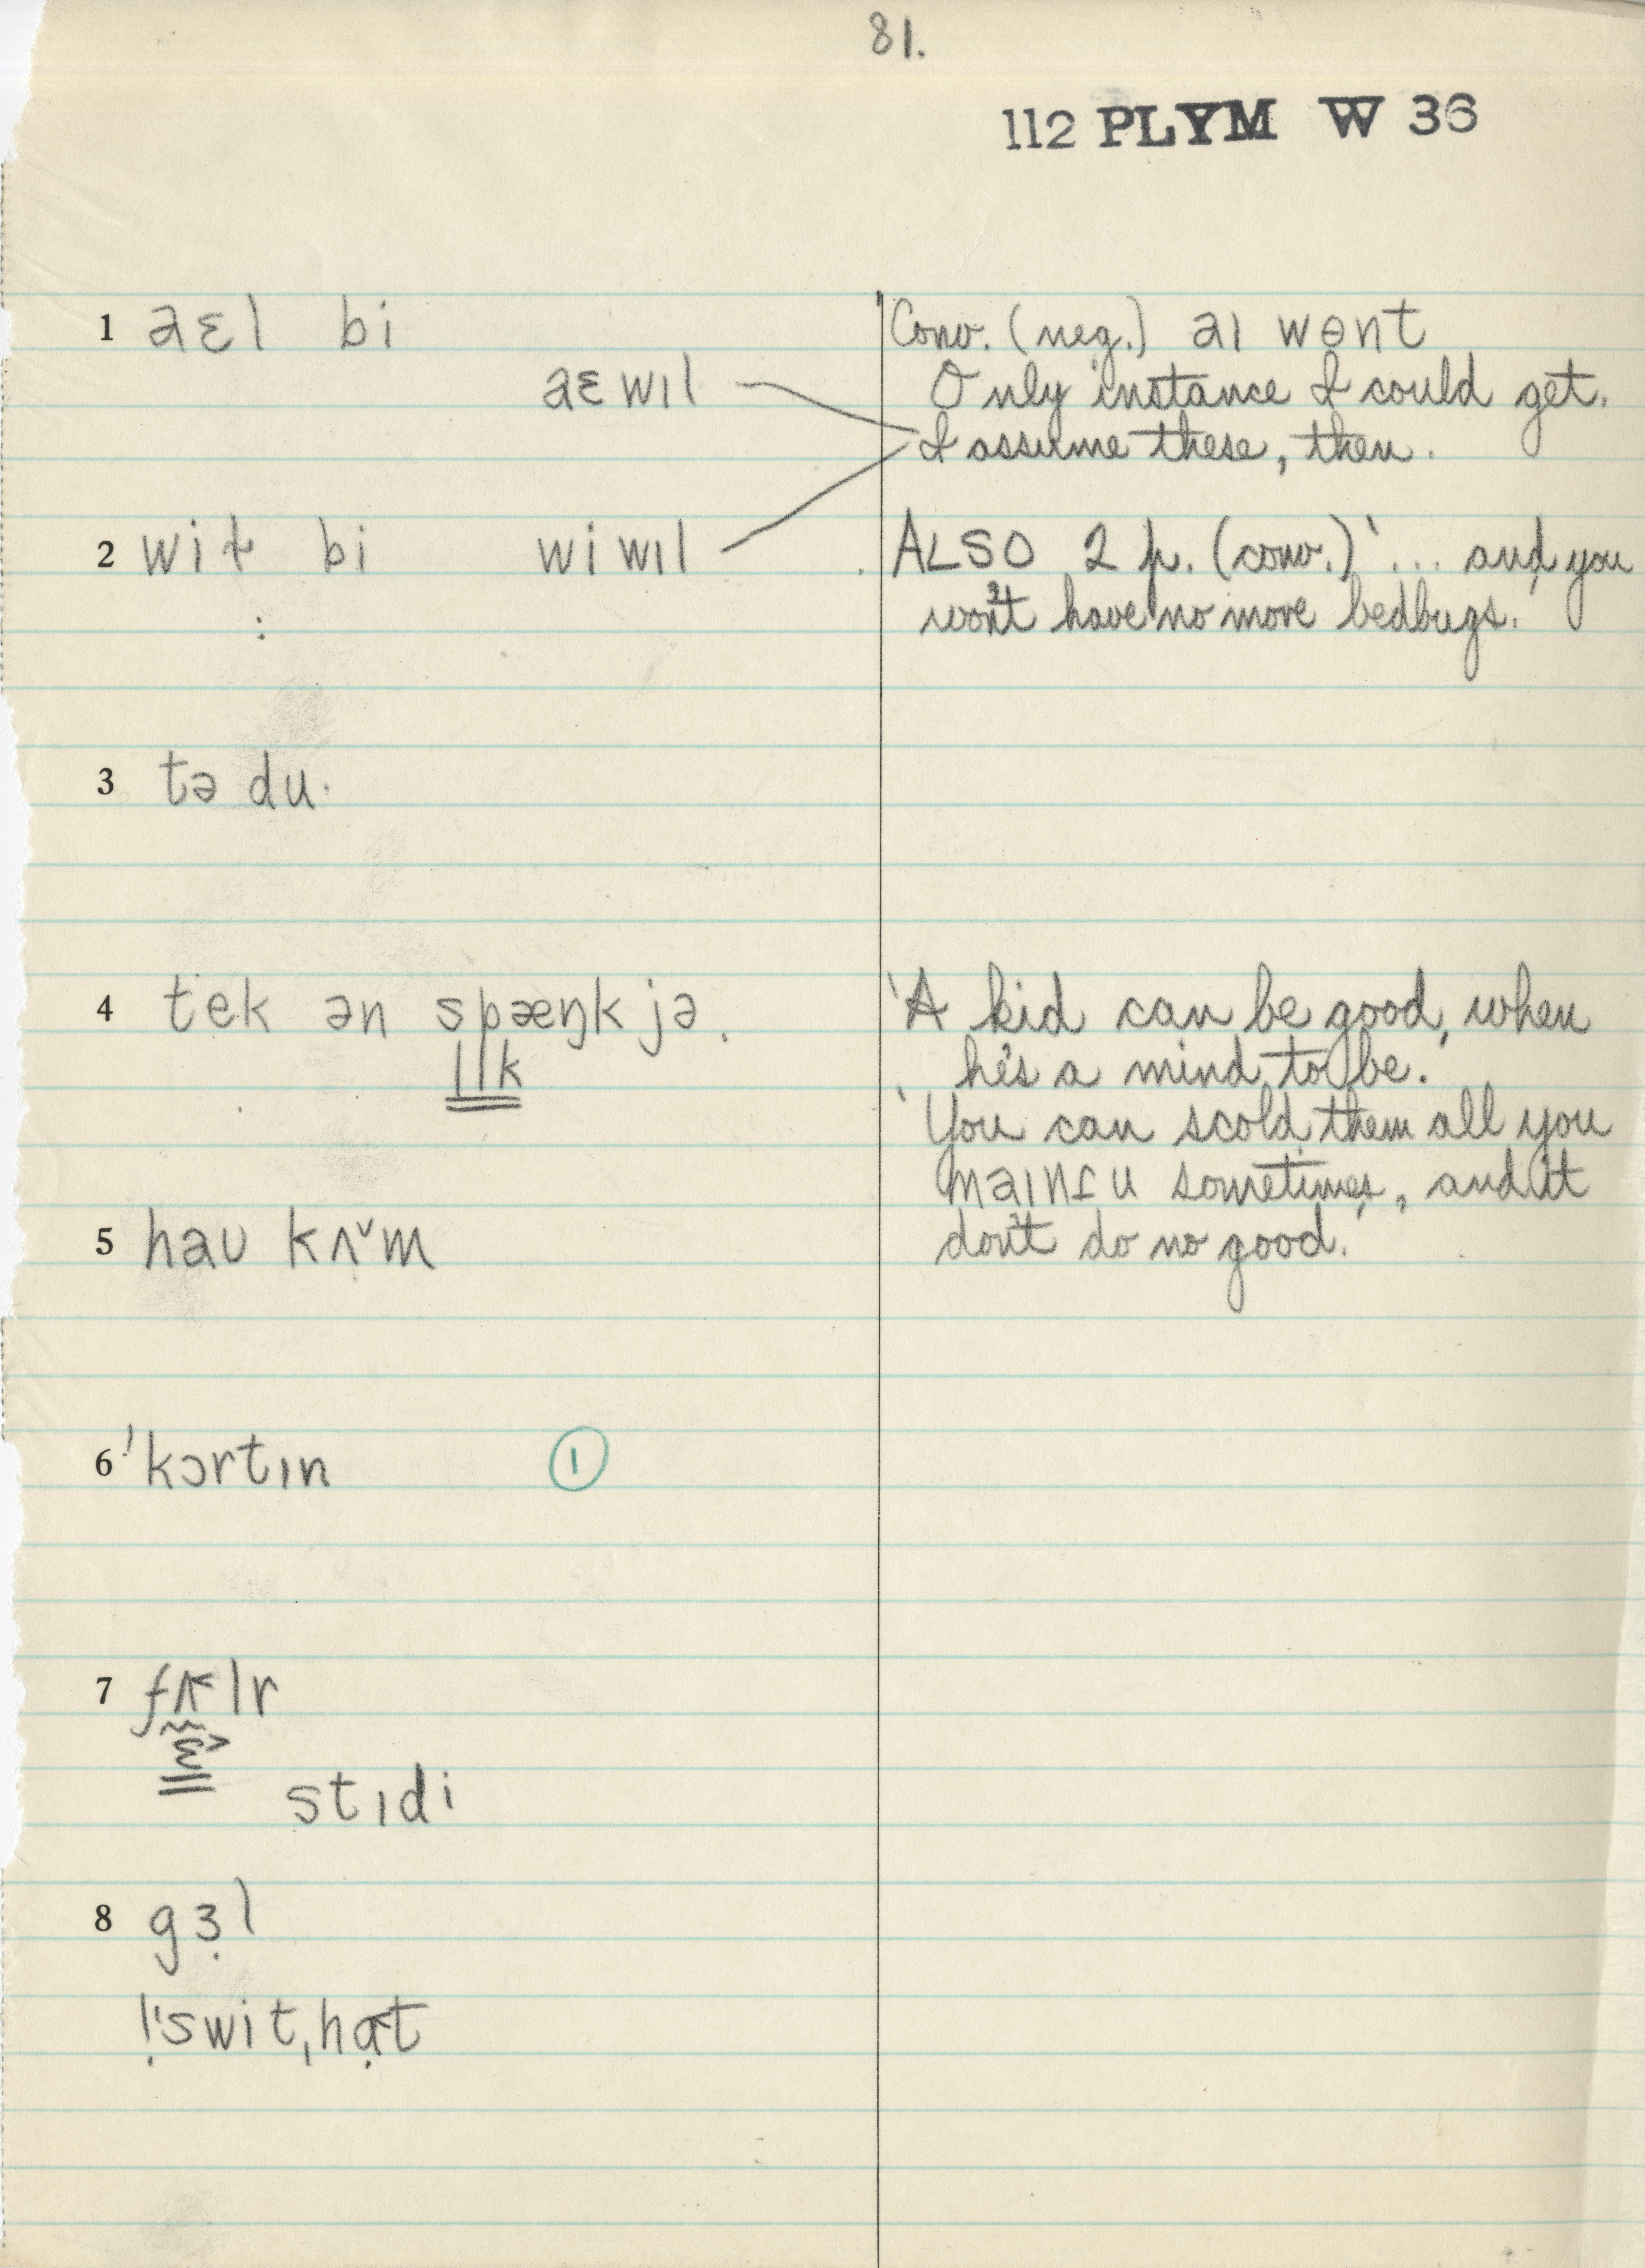 81.
112 PLYM W 36
1 aɛl bi
Conv. (neg.) aɪ wɵnt
aɛ wɪl
Only instance I could get.
I assume these, then.
2 wiɫ bi wi wɪl
ALSO 2 p. (conv.) '... and you
won't have no more bedbugs.'
:
3 tə du·
4 tek ən spæŋk jə.
lɪk
'A kid can be good, when
he's a mind to be.'
'You can scold them all you
maɪnt u sometimes, and it
don't do no good.'
5 haʊ kʌ˅m
6 'kɔrtɪn ①
7 fʌlr
ɛ˃
stɪdi
8 gɜ̣l
'swit,hɑ̣t